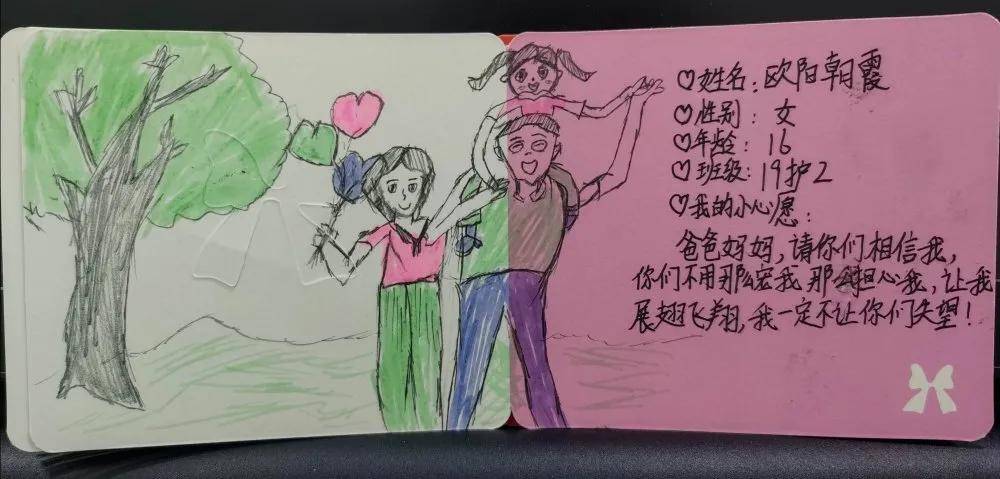 ♡姓名：欧阳朝霞
♡性别：女
♡年龄：16
♡班级：19护2
♡我的小心愿：
爸爸妈妈，请你们相信我，
你们不用那么宠我那么担心我，让我
展翅飞翔，我一定不让你们失望！